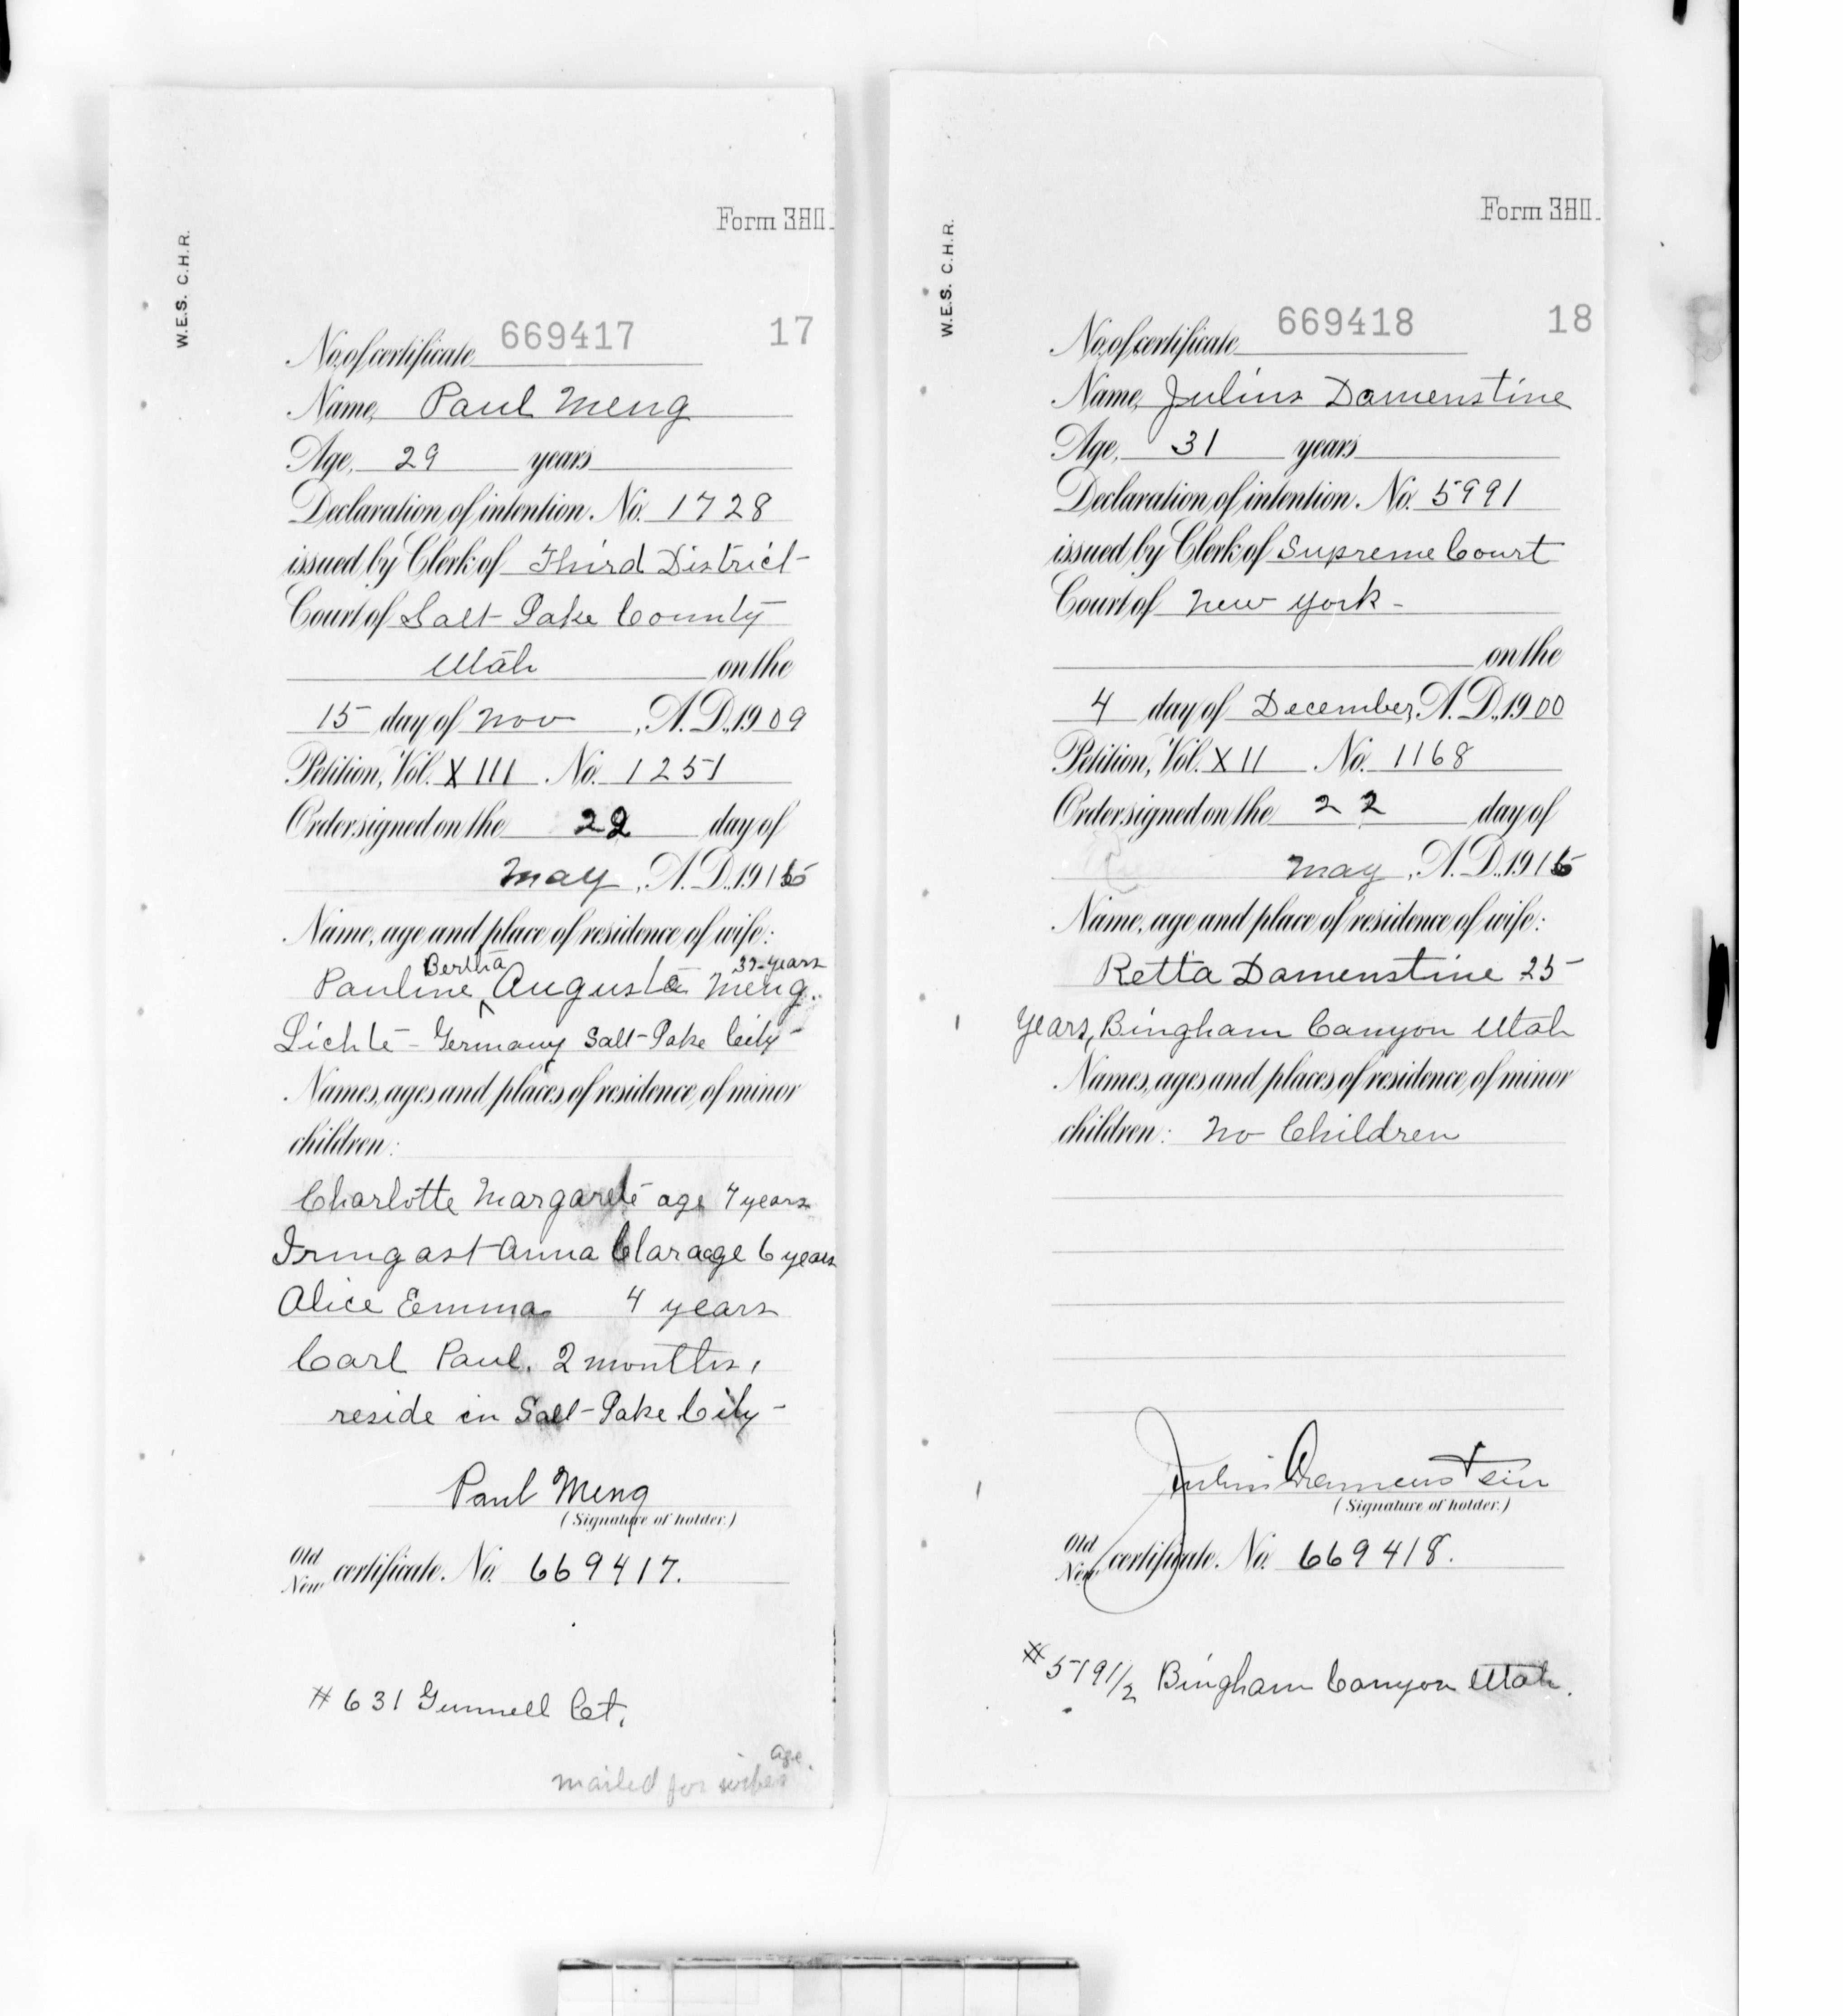 W.E.S. C.H.R.
Form 380.
No. of certificate 669417 17
Name, Paul Meng
Age, 29 years
Declaration of intention. No. 1728
issued by Clerk of Third District
Court of Salt Lake County
Utah on the
15 day of Nov, A.D., 1909
Petition, Vol. XIII. No. 1251
Order signed on the 22 day of
May, A.D., 1915
Name, age and place of residence of wife:
Bertha 32 years
Pauline ^ Augusta Meng.
Lichte Germany Salt Lake City
Names, ages and places of residence of minor
children:
Charlotte Margarete age 7 years
Anna Clara age 6 years
Alice Emma 4 years
Carl Paul. 2 months,
reside in Salt Lake City
Paul Meng
(Signature of holder.)
Old
New certificate. No. 669417.
# 631 Gunnell Ct.
age.
mailed for wife's
W.E.S. C.H.R.
Form 380.
No. of certificate 669418 18
Name, Julius Damenstine
Age, 31 years
Declaration of intention. No. 5991
issued by Clerk of Supreme Court
Court of New York
on the
4 day of December, A.D., 1900
Petition, Vol. XII. No. 1168
Order signed on the 22 day of
May, A.D., 1915
Name, age and place of residence of wife:
Retta Damenstine 25
years, Bingham Canyon Utah
Names, ages and places of residence of minor
children: No Children
Julius Damenstein
(Signature of holder.)
Old
New certificate. No. 669418.
# 519 1/2 Bingham Canyon Utah.